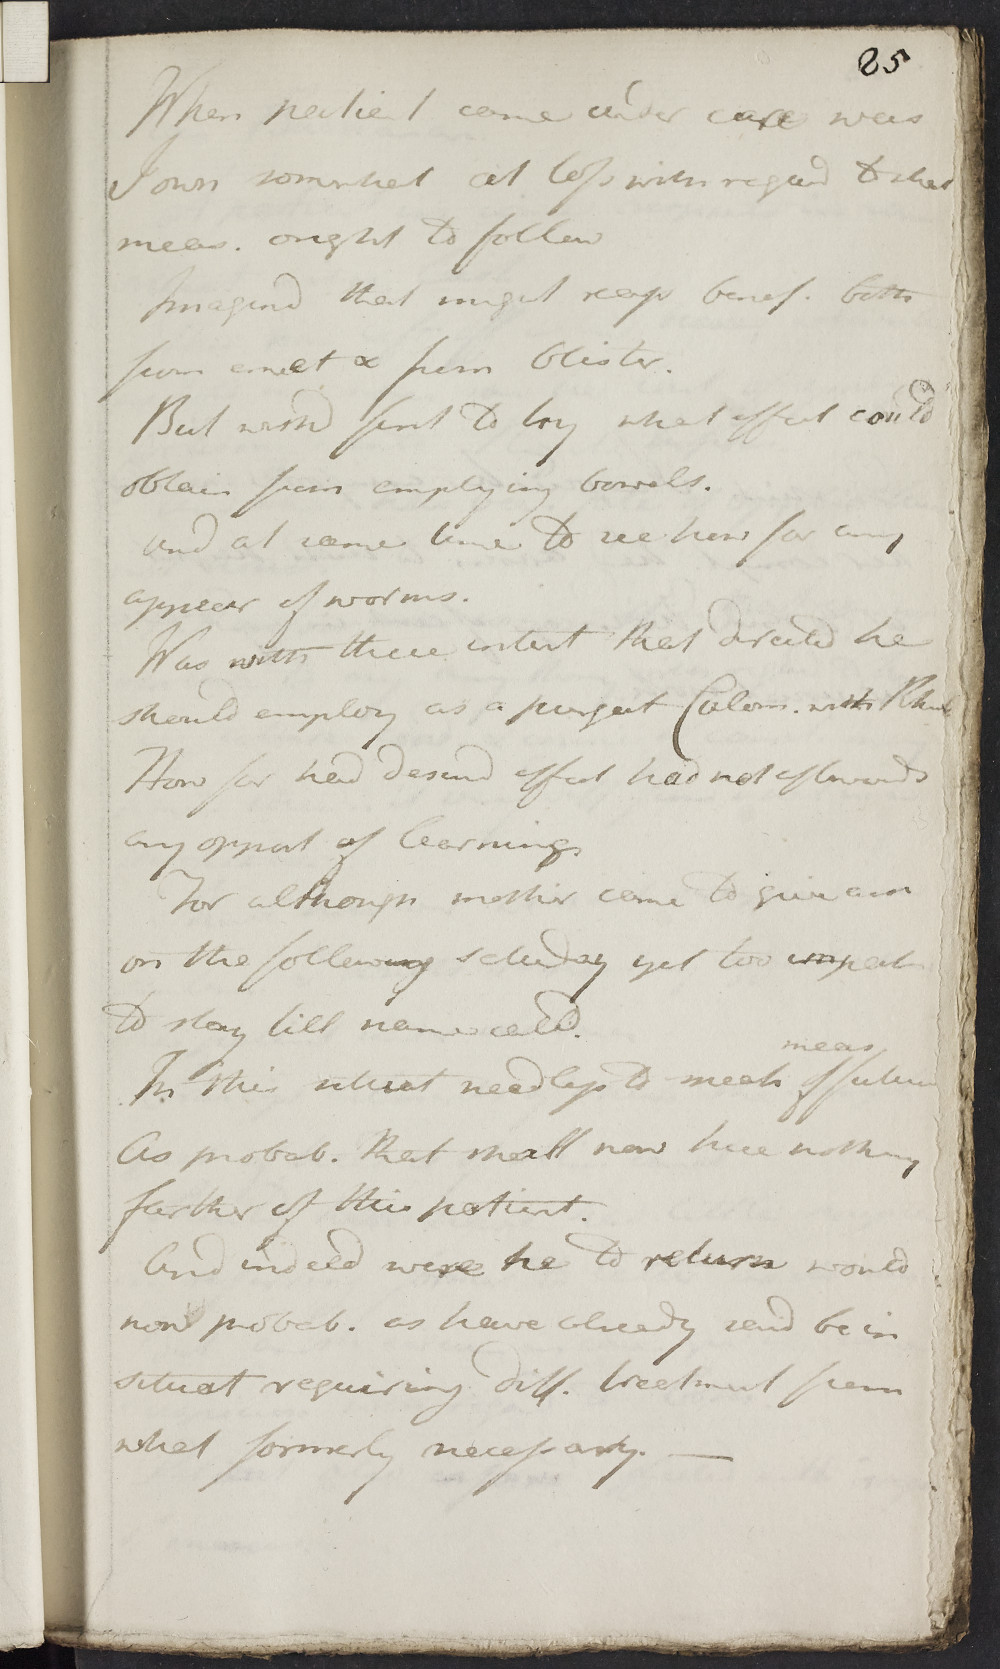 85
When patient came under care was
I own somwhat at loss with regard to what
meas. ought to follow
Imagind that might reap benef. both
from emet & from blister.
But wishd first to try what effect could
obtain from emptying bowels.
And at same time to see how far any
appear of worms.
Was with these intent that directed he
should employ as a purgat Calom. with Rhub
How far had desird effect had not afterwards
any opport of learning
For although mother came to give acc
on the following saturday yet too impat
to stay till name calld.
meas
In this situat needless to speak of future
As probab. that shall now hear nothing
farther of this patient.
And indeed were he to return would
now probab. as have already said be in
situat requiring diff. treatment from
what formerly necessary. —